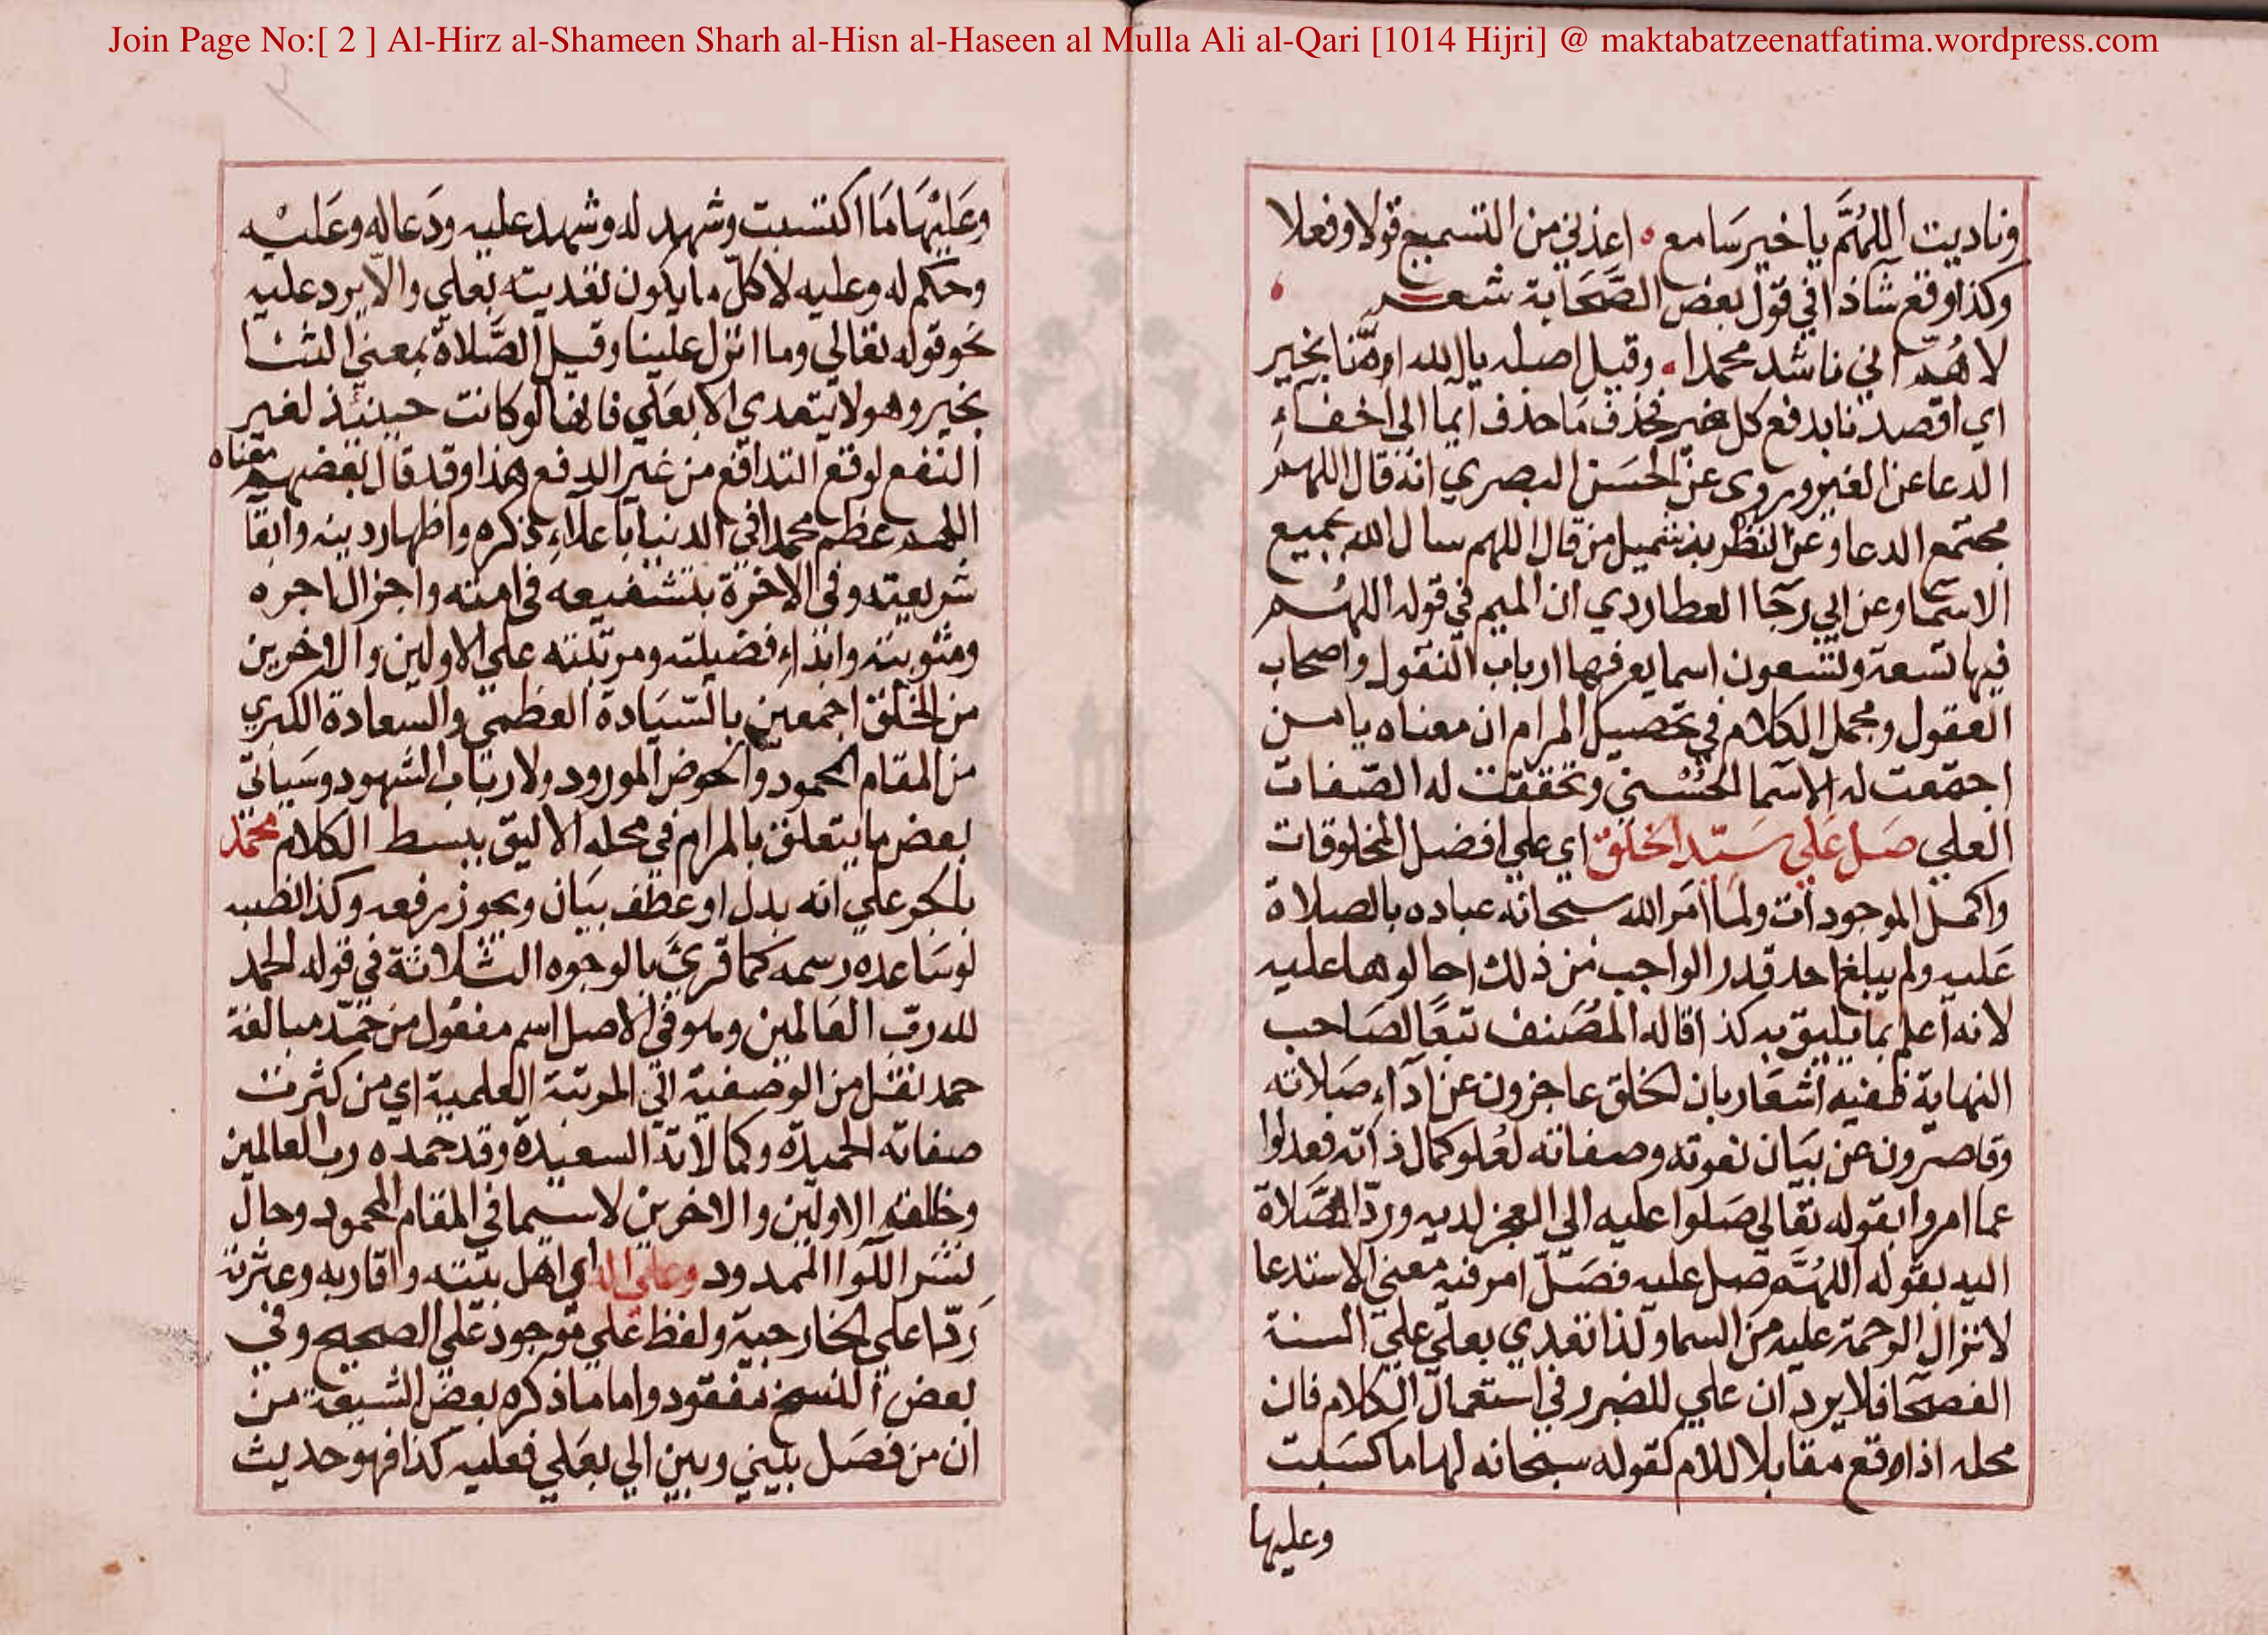 Join Page No:[ 2 ] Al-Hirz al-Shameen Sharh al-Hisn al-Haseen al Mulla Ali al-Qari [1014 Hijri] @ maktabatzeenatfatima.wordpress.com
وناديت اللهُمَّ يا خير سَامع اعذني من التسميع قولا وفعلا
وكذا وقع شاذا في قول بعض الصَّحَابة شعر
لا هُمّ اني ناشد محمدا وقيل اصله يا الله اومّنا بخير
اي اقصدنا بدفع كل ضير فحذف مَا حذف ايما الى اخفاءِ
الدعا عن الغير وروى عن الحسَن البصري انه قال اللهم
مجتمع الدعا وعن النظر بن شميل من قال اللهم سال الله بجميع
الاسما وعن ابي رجا العطاردي ان الميم في قوله اللهُم
فيها تسعة وتسعون اسما يعرفها ارباب النقول واصحاب
العقول ومجمل الكلام في تحصيل المرام ان معناه يا من
اجتمعت له الاسما الحُسْني وتحققت له الصّفات
العلي صَل عَلَى سَيّد الخلق اي علي افضل المخلوقات
واكمل الموجودات ولما امَر الله سبحانه عباده بالصلاة
عَليه ولم يبلغ احد قدر الواجب من ذلك احالوها عليه
لانه اعلم بما يليق به كذا قاله المُصَنف تبعًا لصَاحب
النهاية ففيه اشعَار بان الخلق عاجزون عن اداءِ صَلاته
وقاصرون عن بيَان نعوته وصفاته لعُلو كمال ذاته فعدلوا
عما امروا بقوله تعَالي صَلوا عليه الي العجز لديه وردّ الصَّلاة
اليه بقوله اللهُمَّ صل عليه فصَلّ امر فيه معني الاستدعا
لانزال الرحمة عليه من السما ولذا تعدي بعلي علي السنة
الفصحا فلا يرد ان علي للضرر في استعمال الكلام فان
محله اذا وقع مقابلا للام كقوله سبحانه لها ما كسَبت
وعليها
وعَليْهَا مَا اكتسبت وشهد له وشهد عليه ودَعا له وعَليْه
وحكم له وعليه لا كلّ ما يكون تعديته بعلي والا يرد عليه
نحو قوله تعالي وما انزل علينا وقيل الصَّلاة بمعني الثنا
بخير وهو لا يتعدي الا بعَلي فانها لو كانت حينئذ لغير
النفع لوقع التدافع من غير الدفع هذا وقد قال بعضهم معناه
اللهم عظم محمدا في الدنيا باعلاءِ ذكره واظهار دينه وابقا
شريعته وفي الاخرة بتشفيعه في امته واجزال اجره
ومثوبته وابداءِ فضيلته ومرتبته علي الاولين والاخرين
من الخلق اجمعين بالسّيَادة العظمي والسعادة الكبري
من المقام المحمود والحوض المورود ولارباب الشهود وسَياتي
بعض ما يتعلق بالمرام في محله الاليق ببسط الكلام محمّد
بالجر علي انه بدل او عطف بيَان ويجوز رفعه وكذا نصبه
لو سَاعده رسمه كما قرئ بالوجوه الثلاثة في قوله الحمد
لله رب العَالمين وهو في الاصل اسم مفعُول من حَمّد مبالغة
حمد نقل من الوصفية الي المرتبة العلمية اي من كثرت
صفاته الحميدة وكمالاته السعيدة وقد حمده رب العالمين
وخلقه الاولين والاخرين لا سيما في المقام المحمود وحال
نشر اللوا الممدود وعلي اله اي اهل بيته واقاربه وعترته
رَدّا علي الخارجية ولفظ علي موجود علي الصحيح وفي
بعض النسخ مفقود واما ما ذكره بعض الشيعة من
ان من فصَل بيني وبين الي بعَلي فعليه كذا فهو حديث